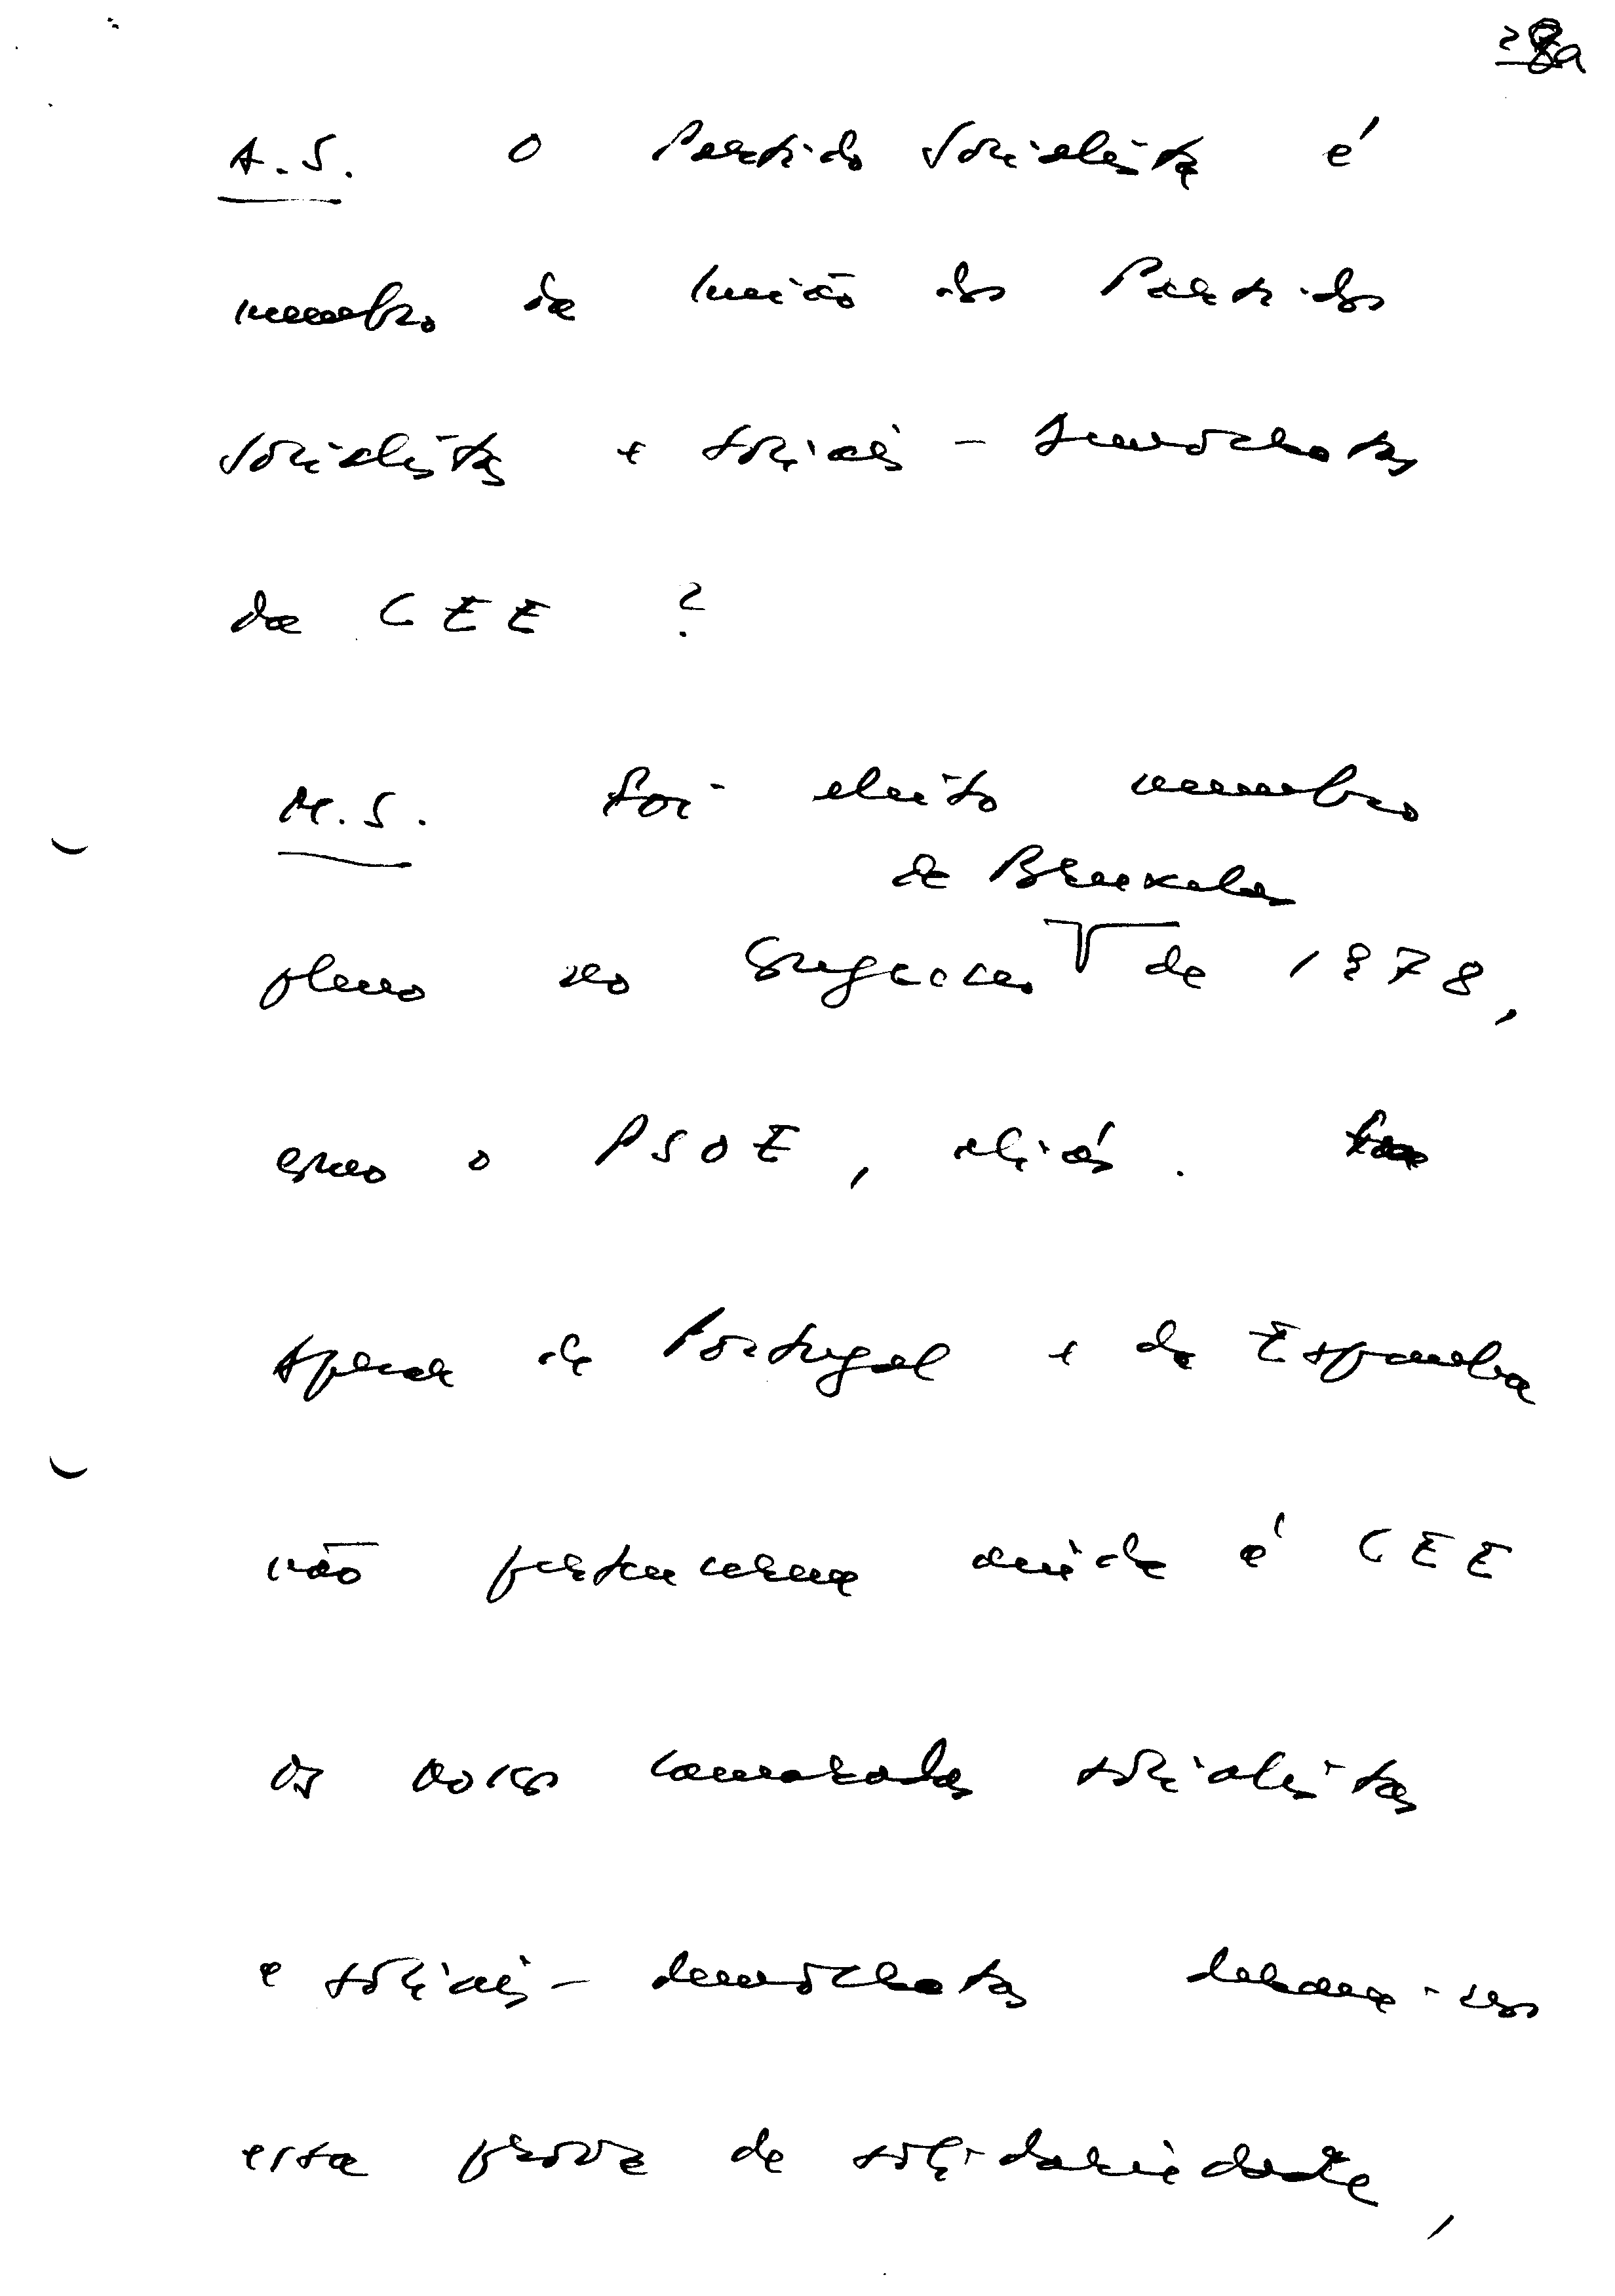 28a
A.S. O Partido Socialista é
membro da União dos Partidos
Socialistas e sociais-democratas
da CEE ?
M.S. Foi eleito membro
de Bruxelas
pleno no Congresso de 1978,
como o PSOE, aliás.
Apesar de Portugal e da Espanha
não pertencerem ainda à CEE
os nossos camaradas socialistas
e sociais-democratas deram-nos
esta prova de solidariedade,